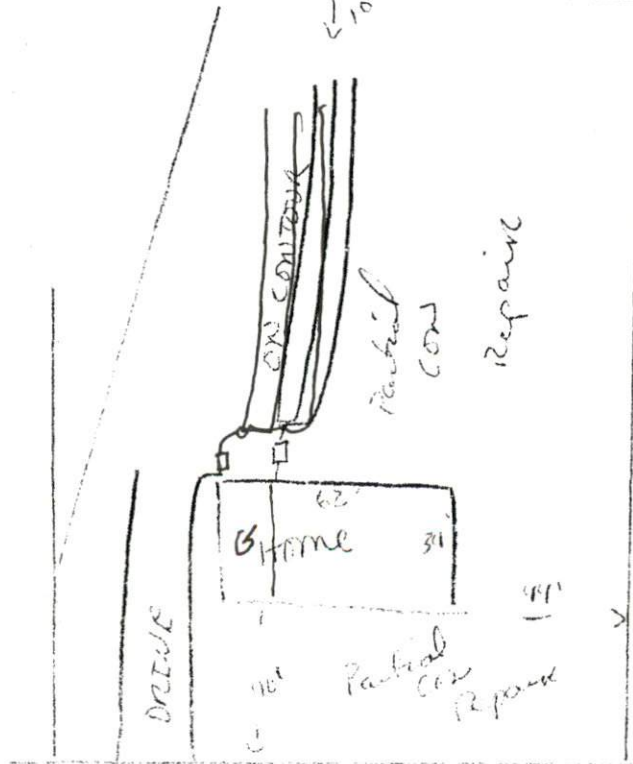 10
ON CONTOUR
Partial
Con
Repair
62'
Home
DRIVE
Partial
Con
Repair